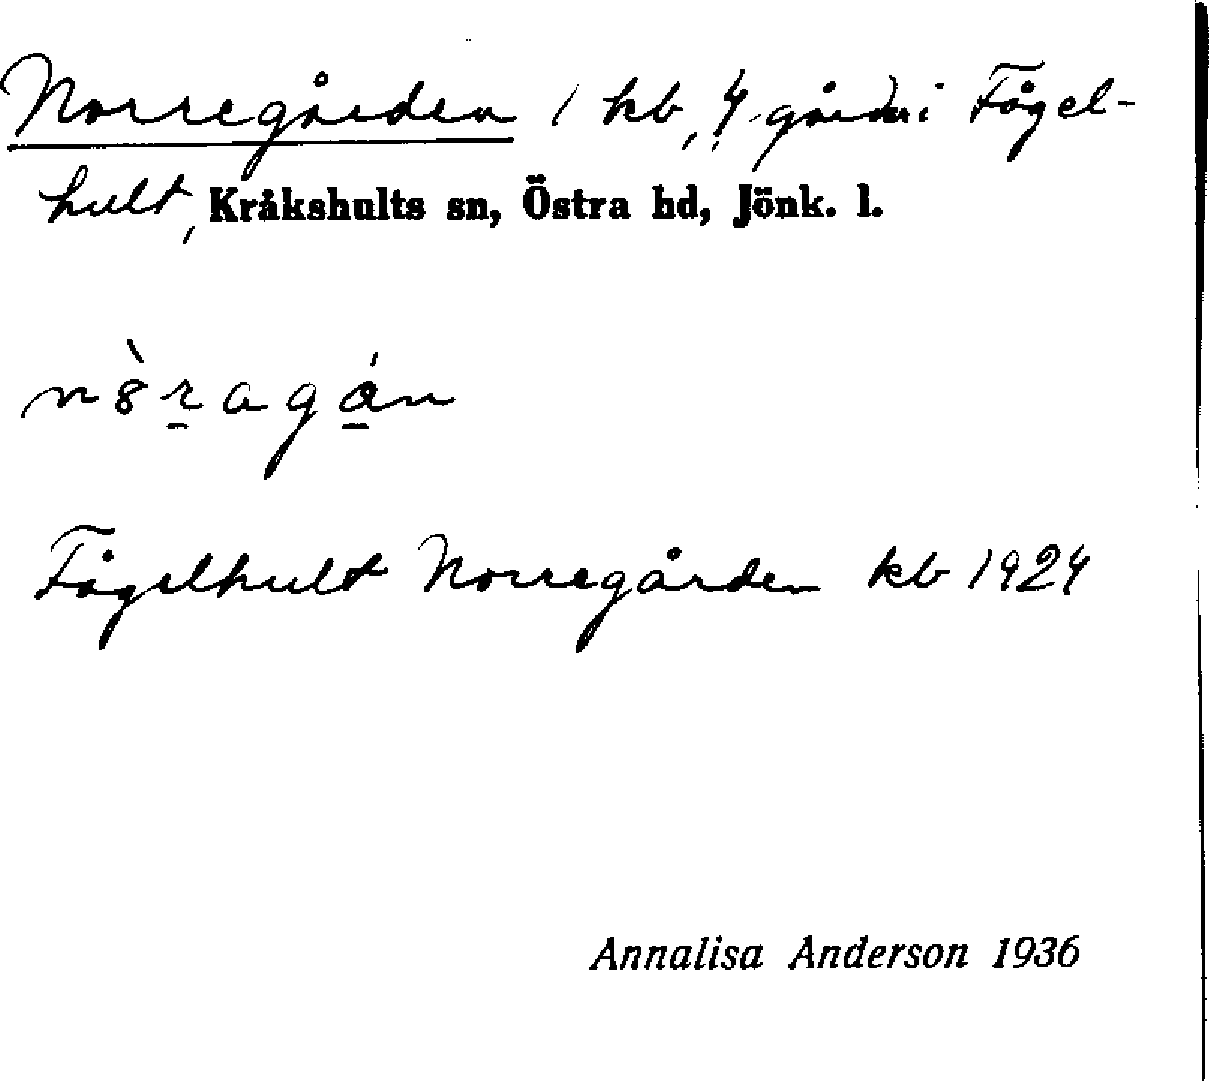 Norregården / kb, 4. gården i Fågel-
hult, Kråkshults sn, Östra hd, Jönk. l.
n8̀r̠agá̠n
Fågelhult Norregården kb 1924
Annalisa Anderson 1936